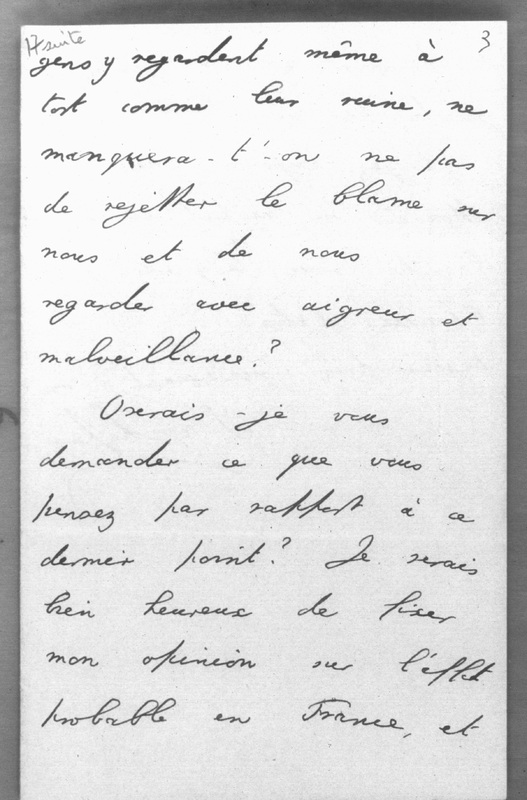 17 suite
3
gens y regardent même à
tort comme leur ruine, ne
manquera-t'-on ne pas
de rejetter le blame sur
nous et de nous
regarder avec aigreur et
malveillance?
Oserais-je vous
demander ce que vous
pensez par rapport à ce
dernier point? Je serais
bien heureux de fixer
mon opinion sur l'effet
probable en France, et